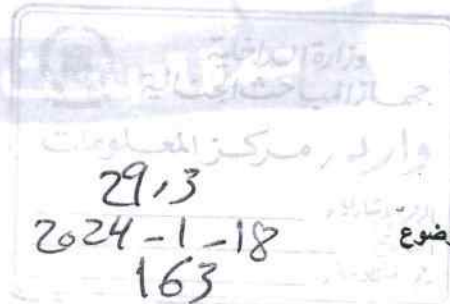 وزارة الداخلية
جهاز المباحث الجنائية
وارد مركز المعلومات
29,3
2024-1-18
ضوع
163